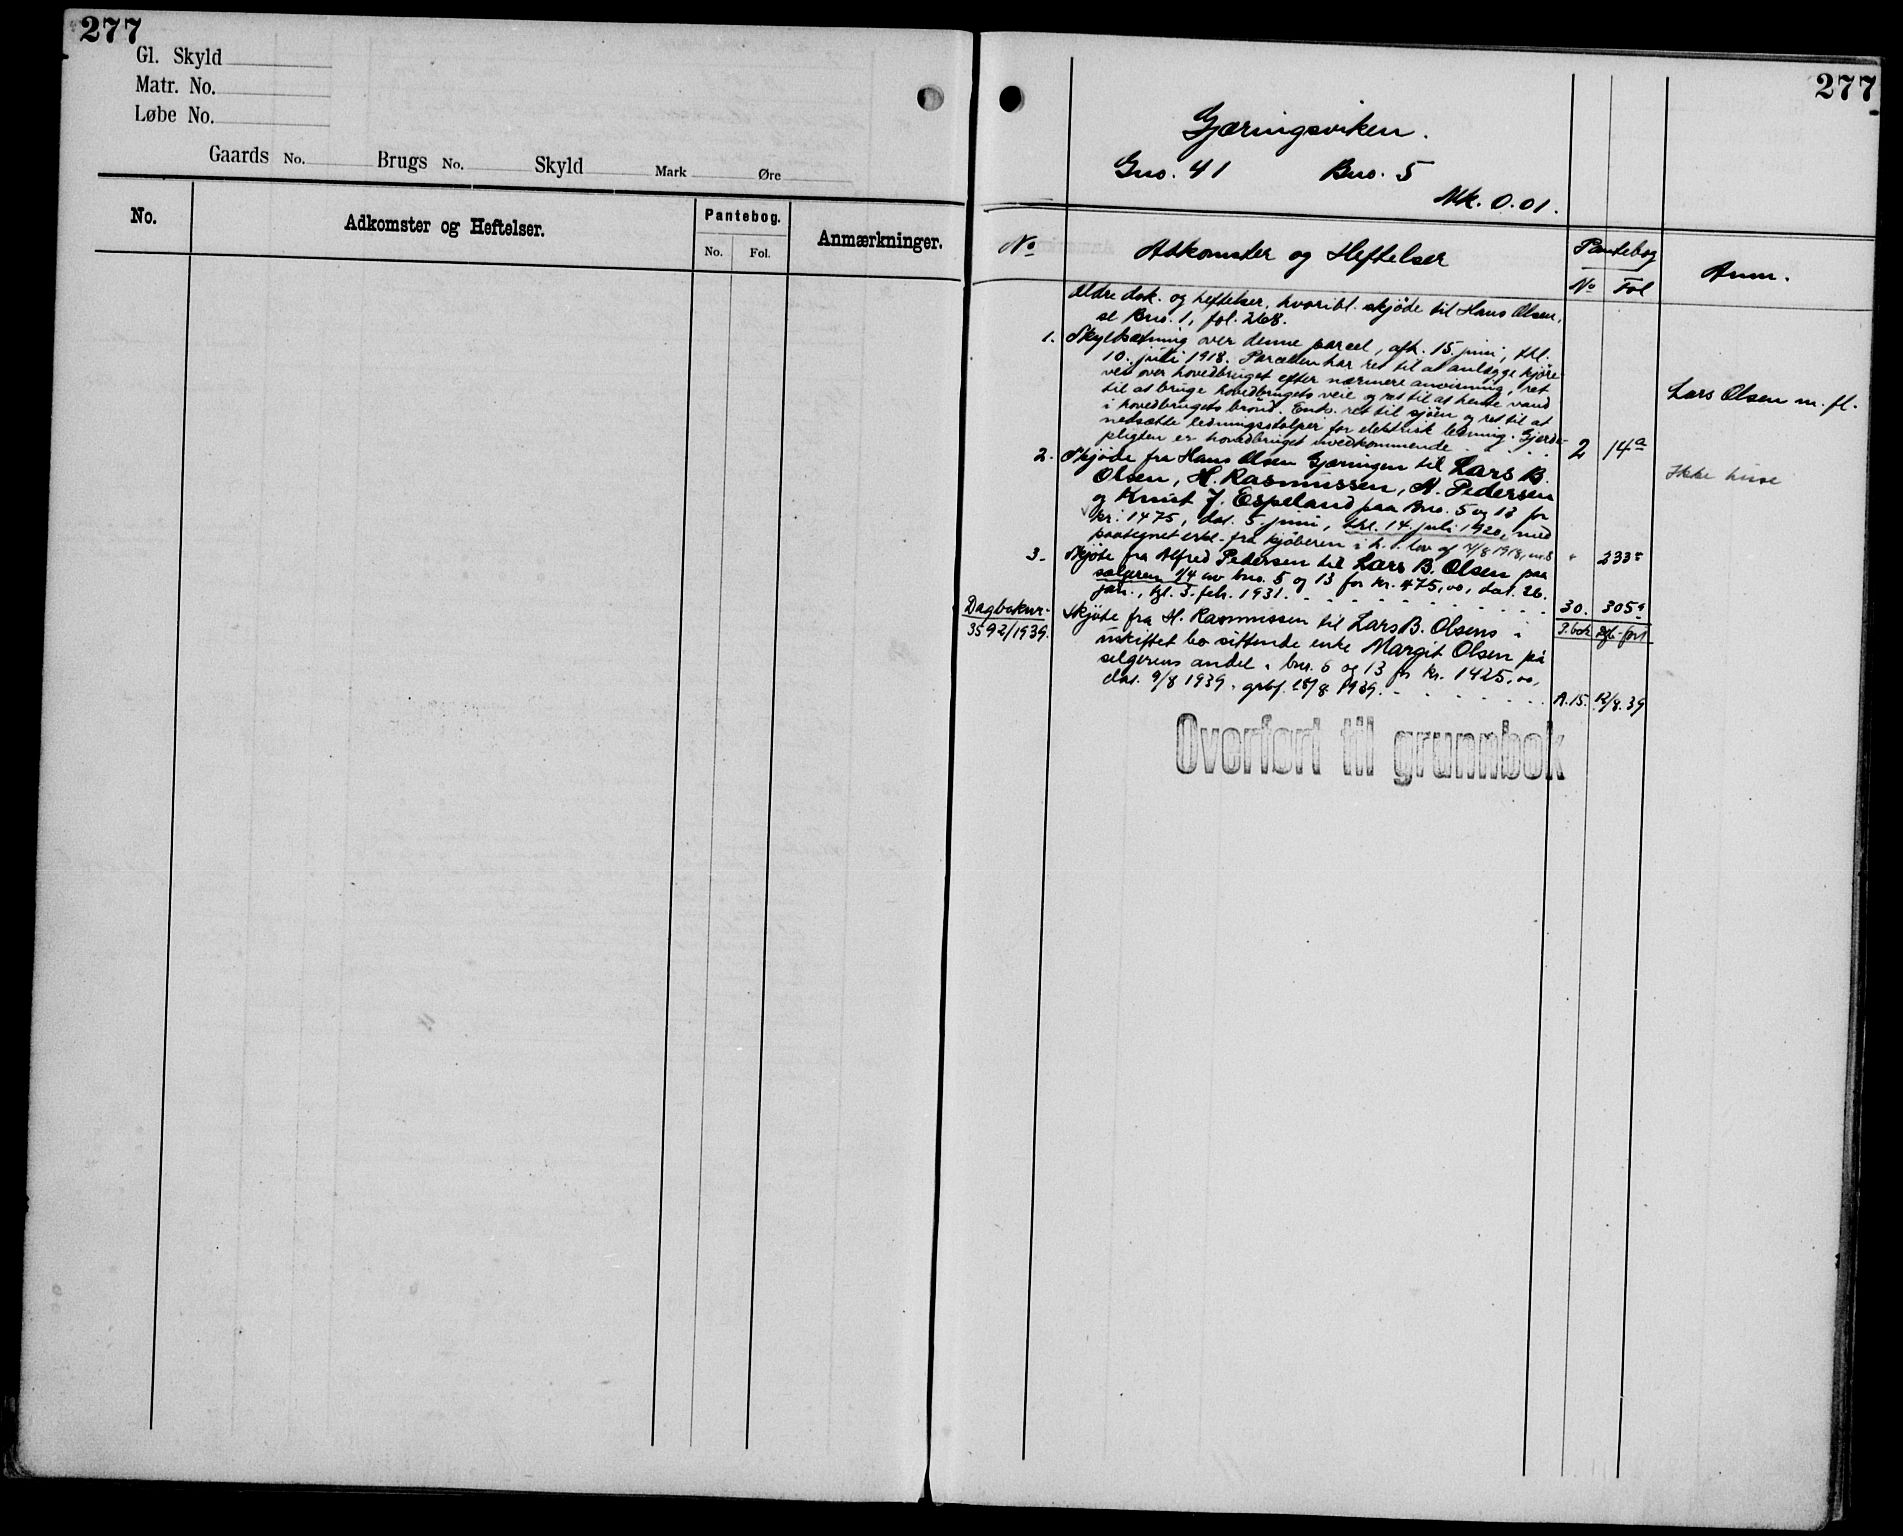 277
Gl. Skyld
Matr. No.
Løbe No.
Gaards No. Brugs No. Skyld Mark Øre
No. Adkomster og Heftelser. Pantebog. Anmærkninger.
No. Fol.
277
Gjæringsviken.
Gno. 41 Bno. 5
Mk. 0.01.
No Adkomster og Heftelser Pantebog Anm.
No Fol
Ældre dok. og heftelser, hvoribl. skjöde til Hans Olsen,
se Bno. 1, fol. 268.
1. Skyldsætning over denne parcel, afh. 15. juni, thl.
10. juli 1918. Parcellen har ret til at anlægge kjöre-
vei over hovedbruget efter nærmere anvisning, ret
til at bruge hovedbrugets veie og ret til at hente vand
i hovedbrugets brönd. Enk. ret til sjöen og ret til at
nedsætte ledningsstolper for elektrisk ledning. Gjerde-
pligten er hovedbruget uvedkommende . . . . 2 14a
Lars Olsen m. fl.
Ikke huse
2. Skjöde fra Hans Olsen Gjæringen til Lars B.
Olsen, H. Rasmussen, A. Pedersen
og Knut J. Espeland paa Bno. 5 og 13 for
kr. 1475, dat. 5. juni, thl. 14. juli 1920, med
paategnet erkl. fra kjöberen i h. t. lov af
" 233
3. Skjöte fra Alfred Pedersen til Lars B. Olsen paa
sælgeren 1/4 av bno. 5 og 13 for kr. 475,00, dat. 26.
jan., tgl. 3. feb. 1931. . . . . . . . 30. 305
Dagboknr.
3592/1939.
P.bok
Skjöte fra H. Rasmussen til Lars B. Olsens i
uskiftet bo sittende enke Margit Olsen på
selgerens andel i bnr. 5 og 13 for kr. 1425,00,
dat. 9/8 1939. grbf. 18/8 1939. . . . . . A.15. 12/8.39
Overført til grunnbok